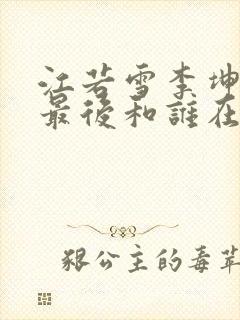 江若雪李坤
最後和誰在
狠公主的毒苹